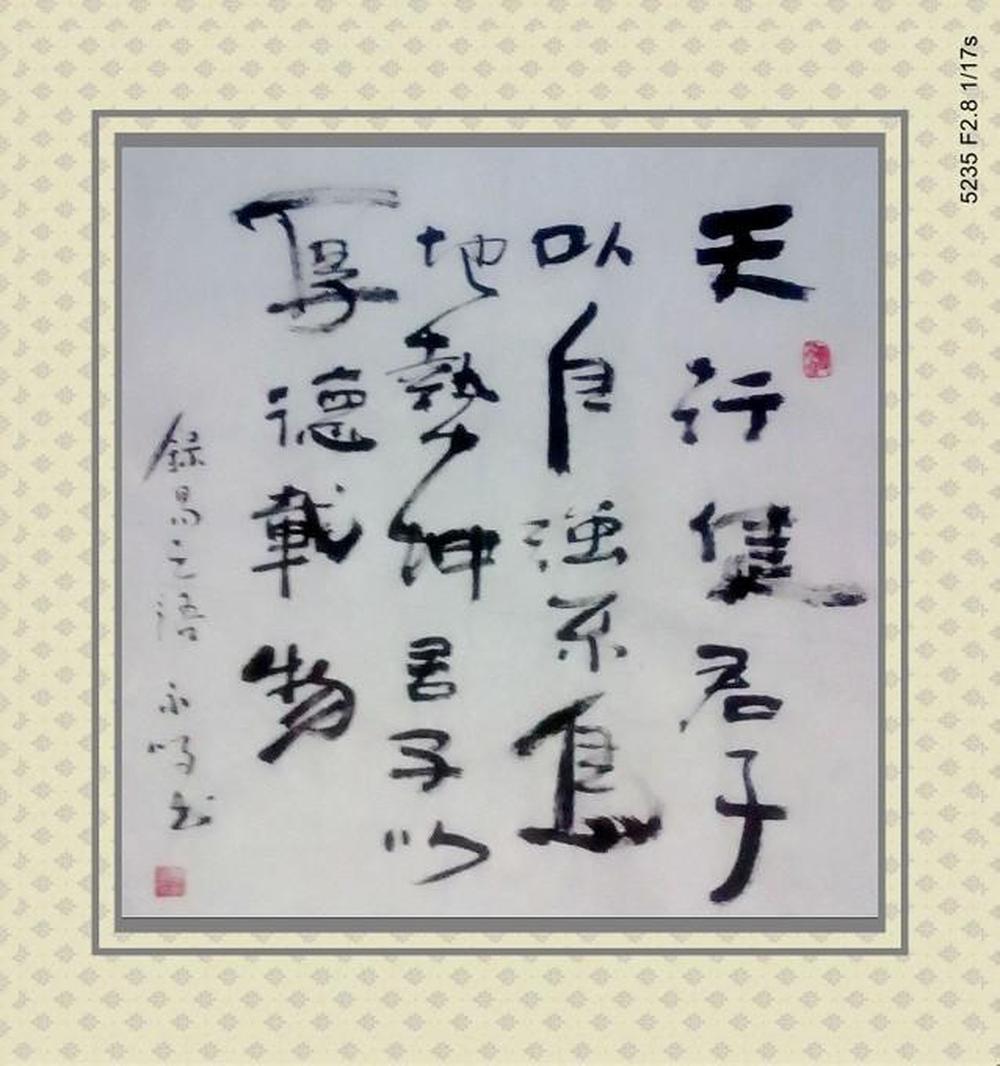 天行健君子
以自强不息
地勢坤君子以
厚德載物
録易之語 永鸣书
5235 F2.8 1/17s